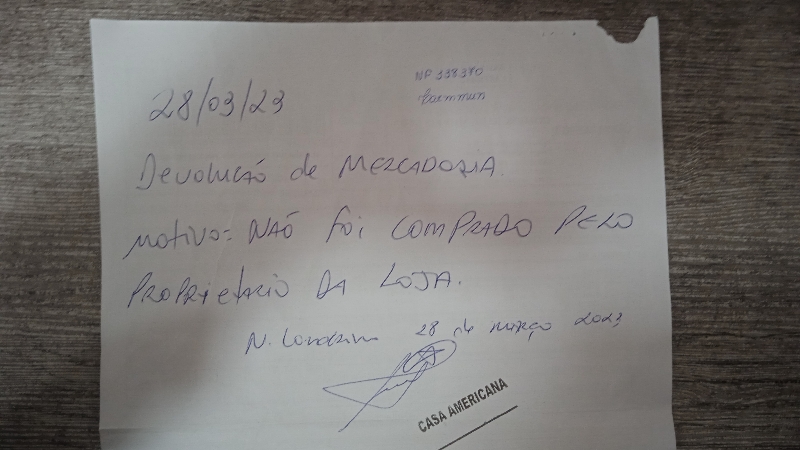 NF 338370
28/03/23
Devolucão de MERCADORIA.
motivo: NÃO foi COMPRADO PELO
PROPRIETARIO DA LOJA.
N. Londrina 28 de março 2023
CASA AMERICANA